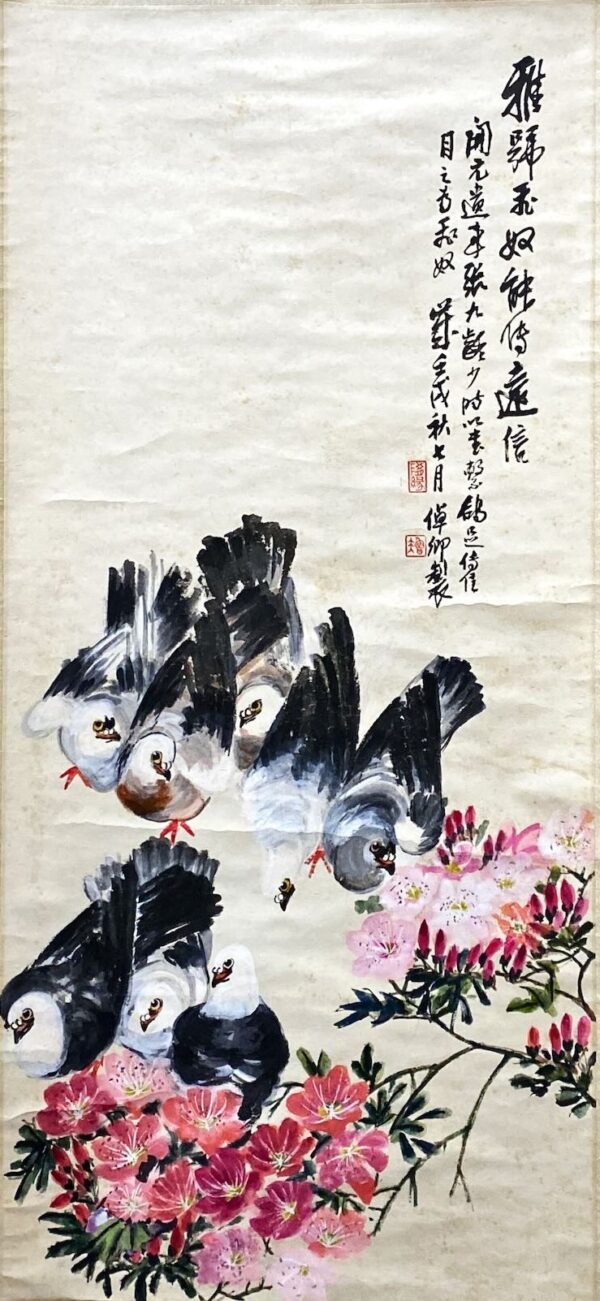 雅號飛奴能傳遠信
開元遺事張九齡少時以書繫鴿足傳往
目之為飛奴 歲壬戌秋七月 倬卿製